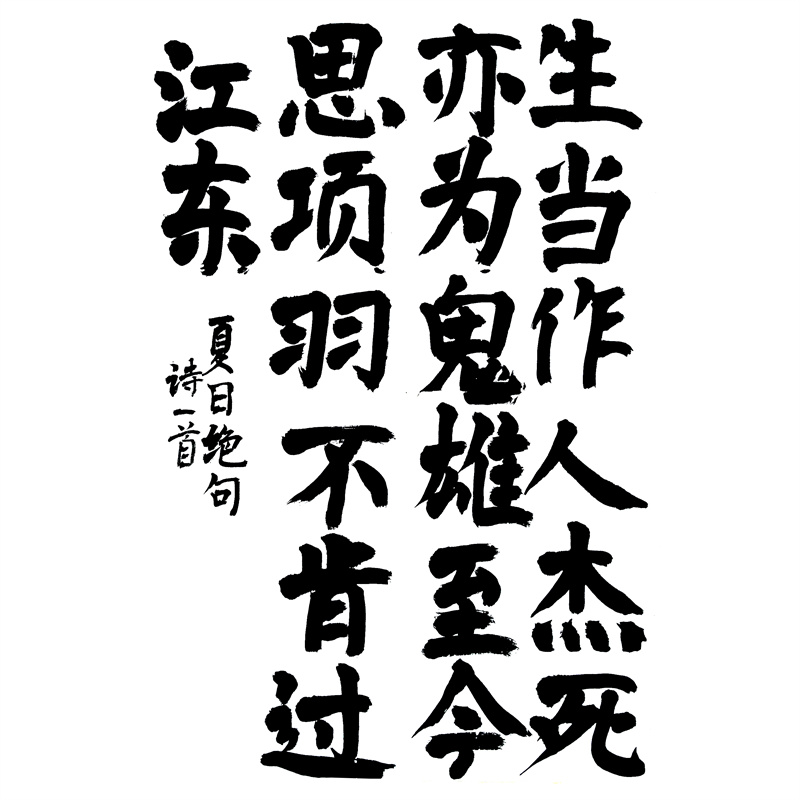 生当作人杰死
亦为鬼雄至今
思项羽不肯过
江东
夏日绝句
诗一首